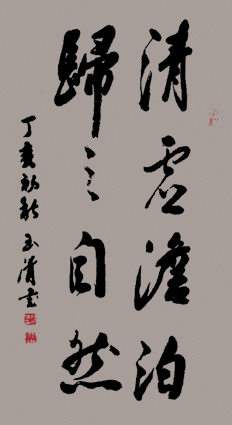 清虚澹泊
歸之自然
丁亥初秋 玉清書